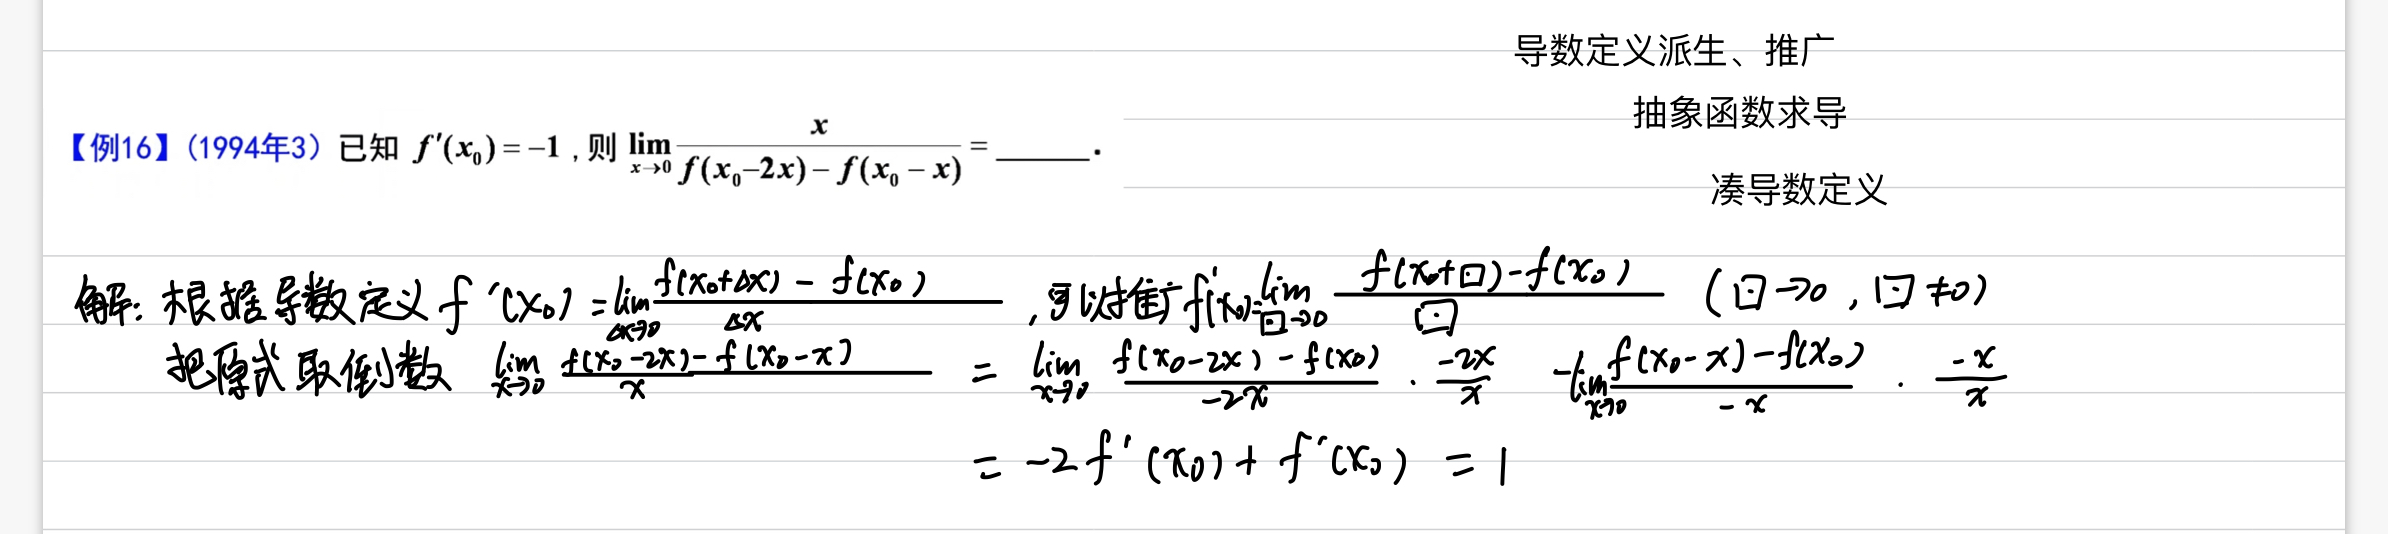 导数定义派生、推广
抽象函数求导
【例16】(1994年3) 已知 f′(x₀)=−1 , 则 lim_{x→0} x / (f(x₀−2x)−f(x₀−x)) = ______.
凑导数定义
解: 根据导数定义 f′(x₀) = lim_{Δx→0} (f(x₀+Δx) − f(x₀)) / Δx , 可以推广 f′(x₀)= lim_{□→0} (f(x₀+□)−f(x₀)) / □ (□→0 , □≠0)
把原式取倒数 lim_{x→0} (f(x₀−2x)−f(x₀−x)) / x = lim_{x→0} (f(x₀−2x)−f(x₀)) / (−2x) · (−2x)/x − lim_{x→0} (f(x₀−x)−f(x₀)) / (−x) · (−x)/x
= −2f′(x₀)+f′(x₀) = 1